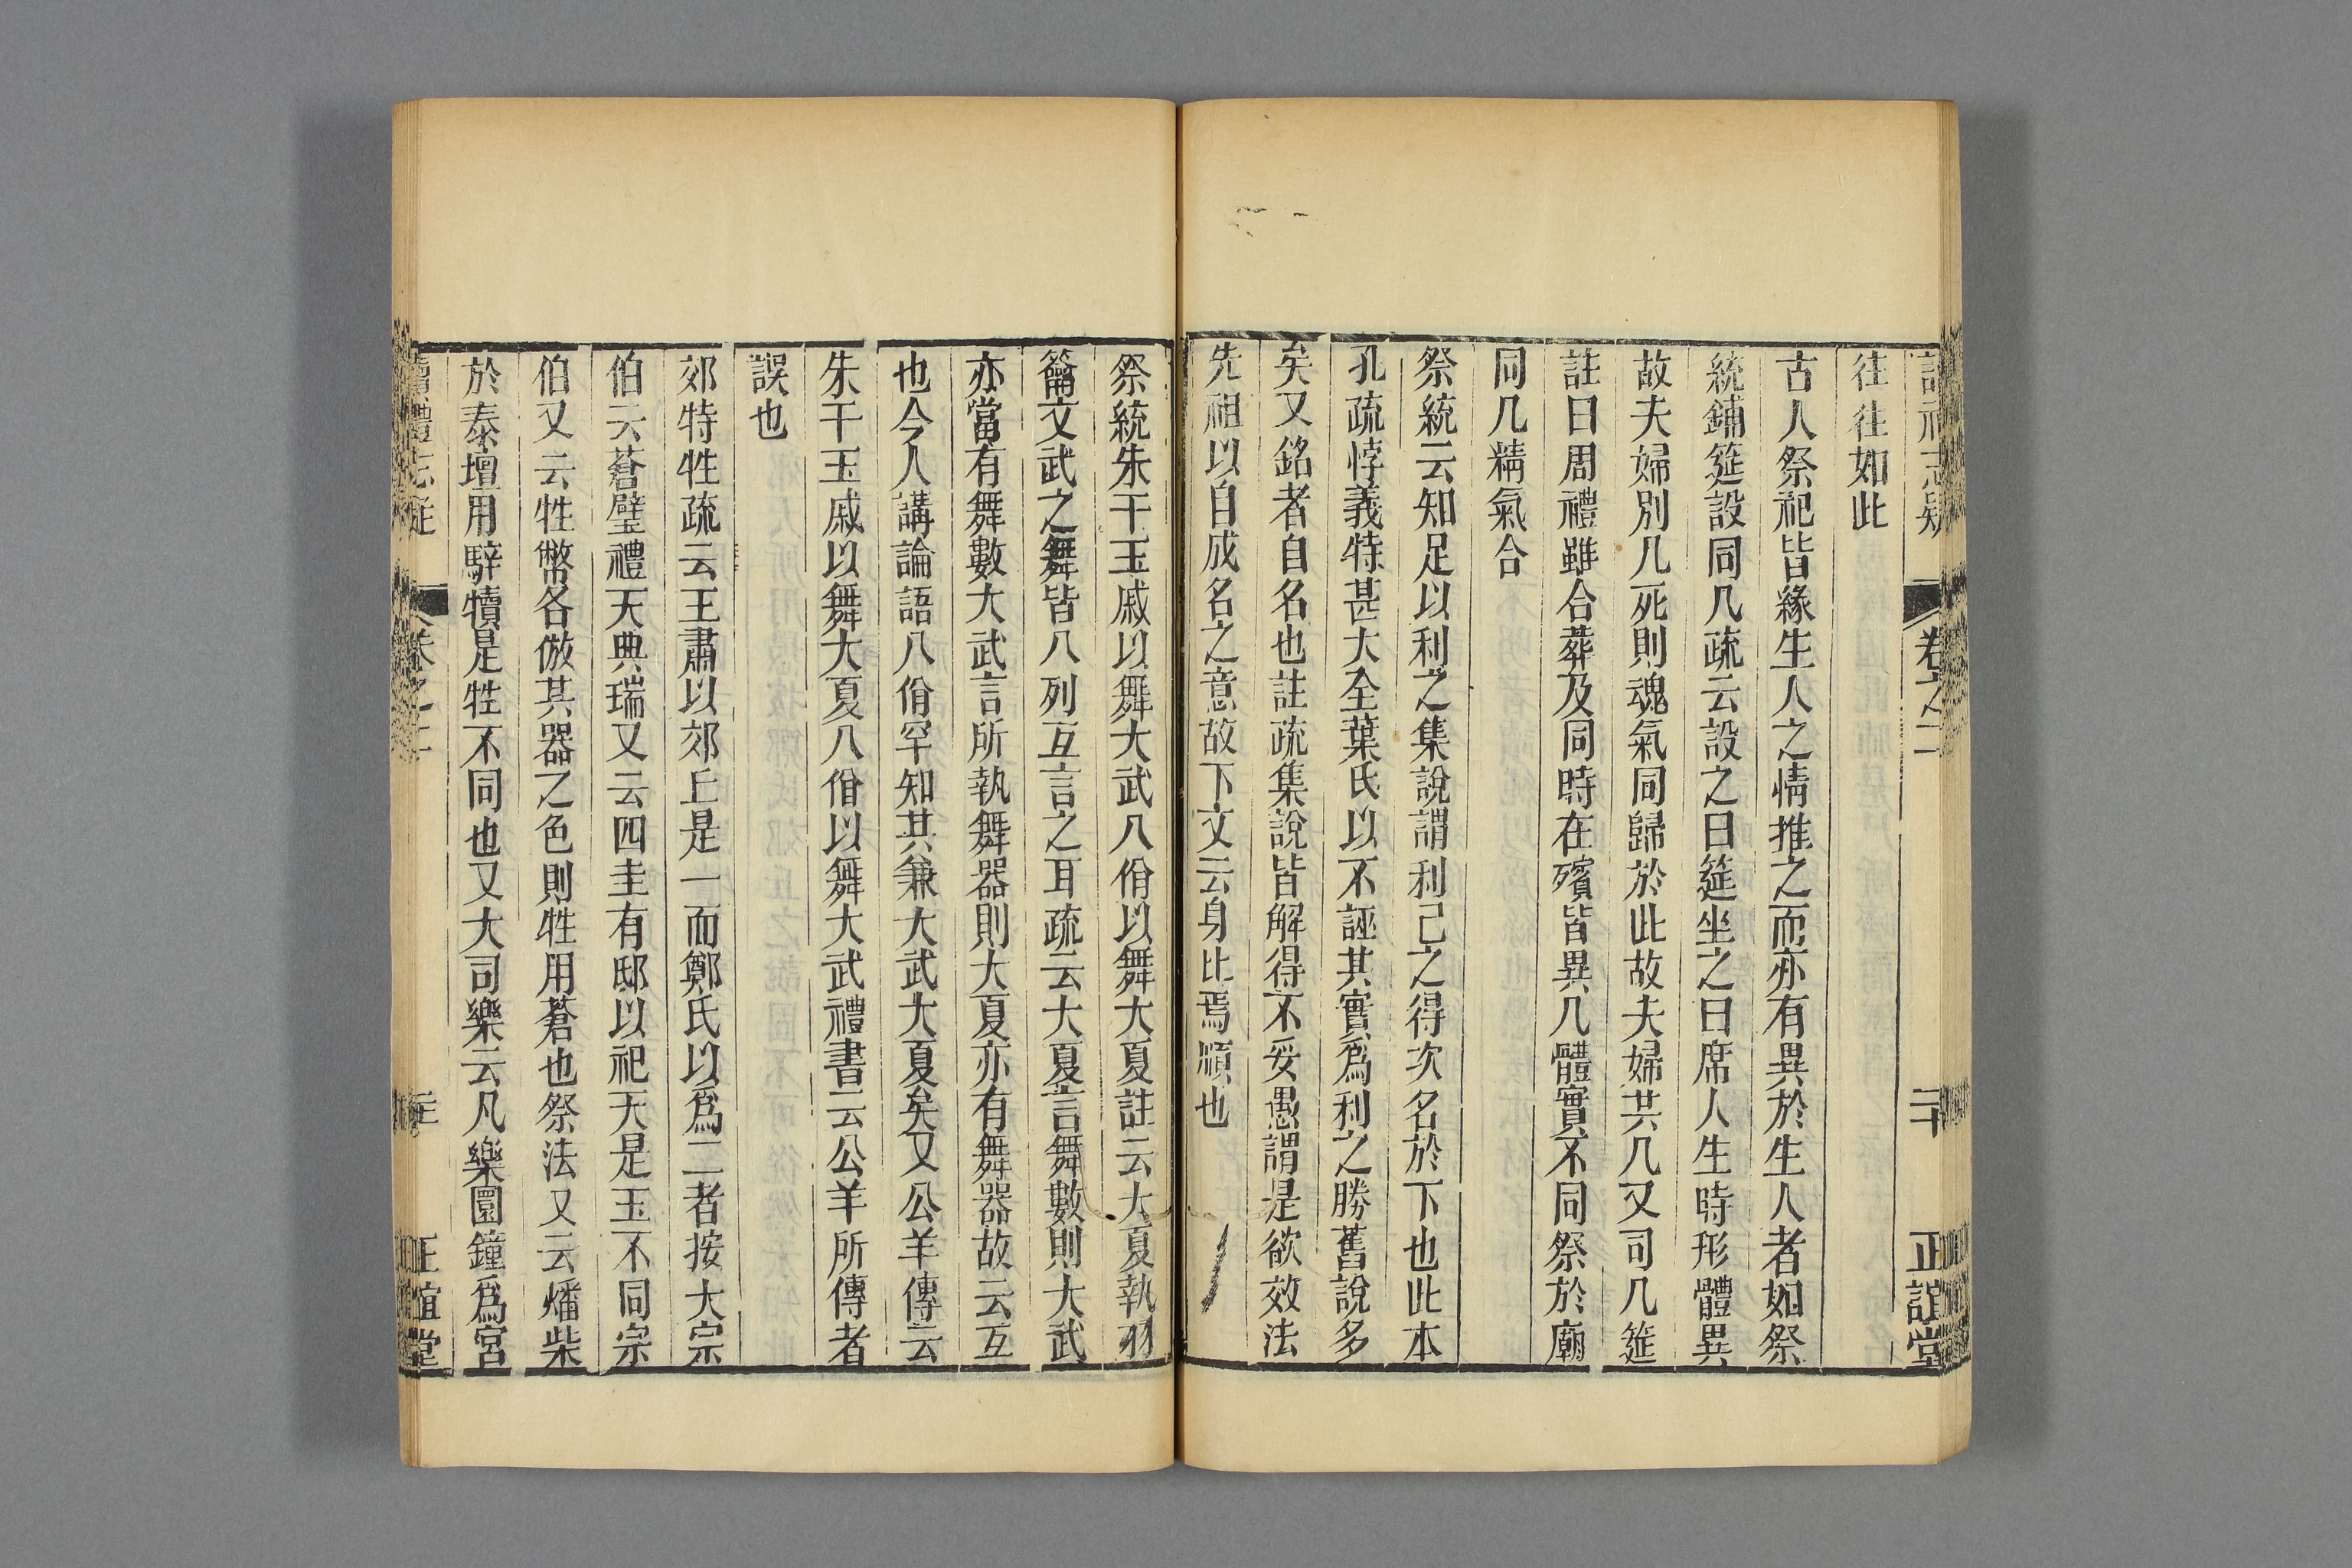 讀禮志疑 卷之二 二十 正誼堂
往往如此
古人祭祀皆緣生人之情推之而亦有異於生人者如祭
統鋪筵設同几疏云設之曰筵坐之曰席人生時形體異
故夫婦別几死則魂氣同歸於此故夫婦共几又司几筵
註曰周禮雖合葬及同時在殯皆異几體實不同祭於廟
同几精氣合
祭統云知足以利之集說謂利己之得次名於下也此本
孔疏悖義特甚大全葉氏以不誣其實爲利之勝舊說多
矣又銘者自名也註疏集說皆解得不妥愚謂是欲效法
先祖以自成名之意故下文云身比焉順也
祭統朱干玉戚以舞大武八佾以舞大夏註云大夏執羽
籥文武之舞皆八列互言之耳疏云大夏言舞數則大武
亦當有舞數大武言所執舞器則大夏亦有舞器故云互
也今人講論語八佾罕知其兼大武大夏矣又公羊傳云
朱干玉戚以舞大夏八佾以舞大武禮書云公羊所傳者
誤也
郊特牲疏云王肅以郊丘是一而鄭氏以爲二者按大宗
伯云蒼璧禮天典瑞又云四圭有邸以祀天是玉不同宗
伯又云牲幣各倣其器之色則牲用蒼也祭法又云燔柴
於泰壇用騂犢是牲不同也又大司樂云凡樂圜鐘爲宮
讀禮志疑 卷之二 正誼堂